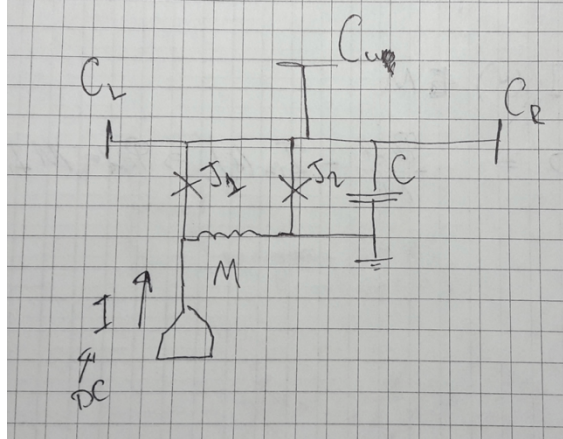 C_L
C_R
J_1
J_2
C
M
I
DC